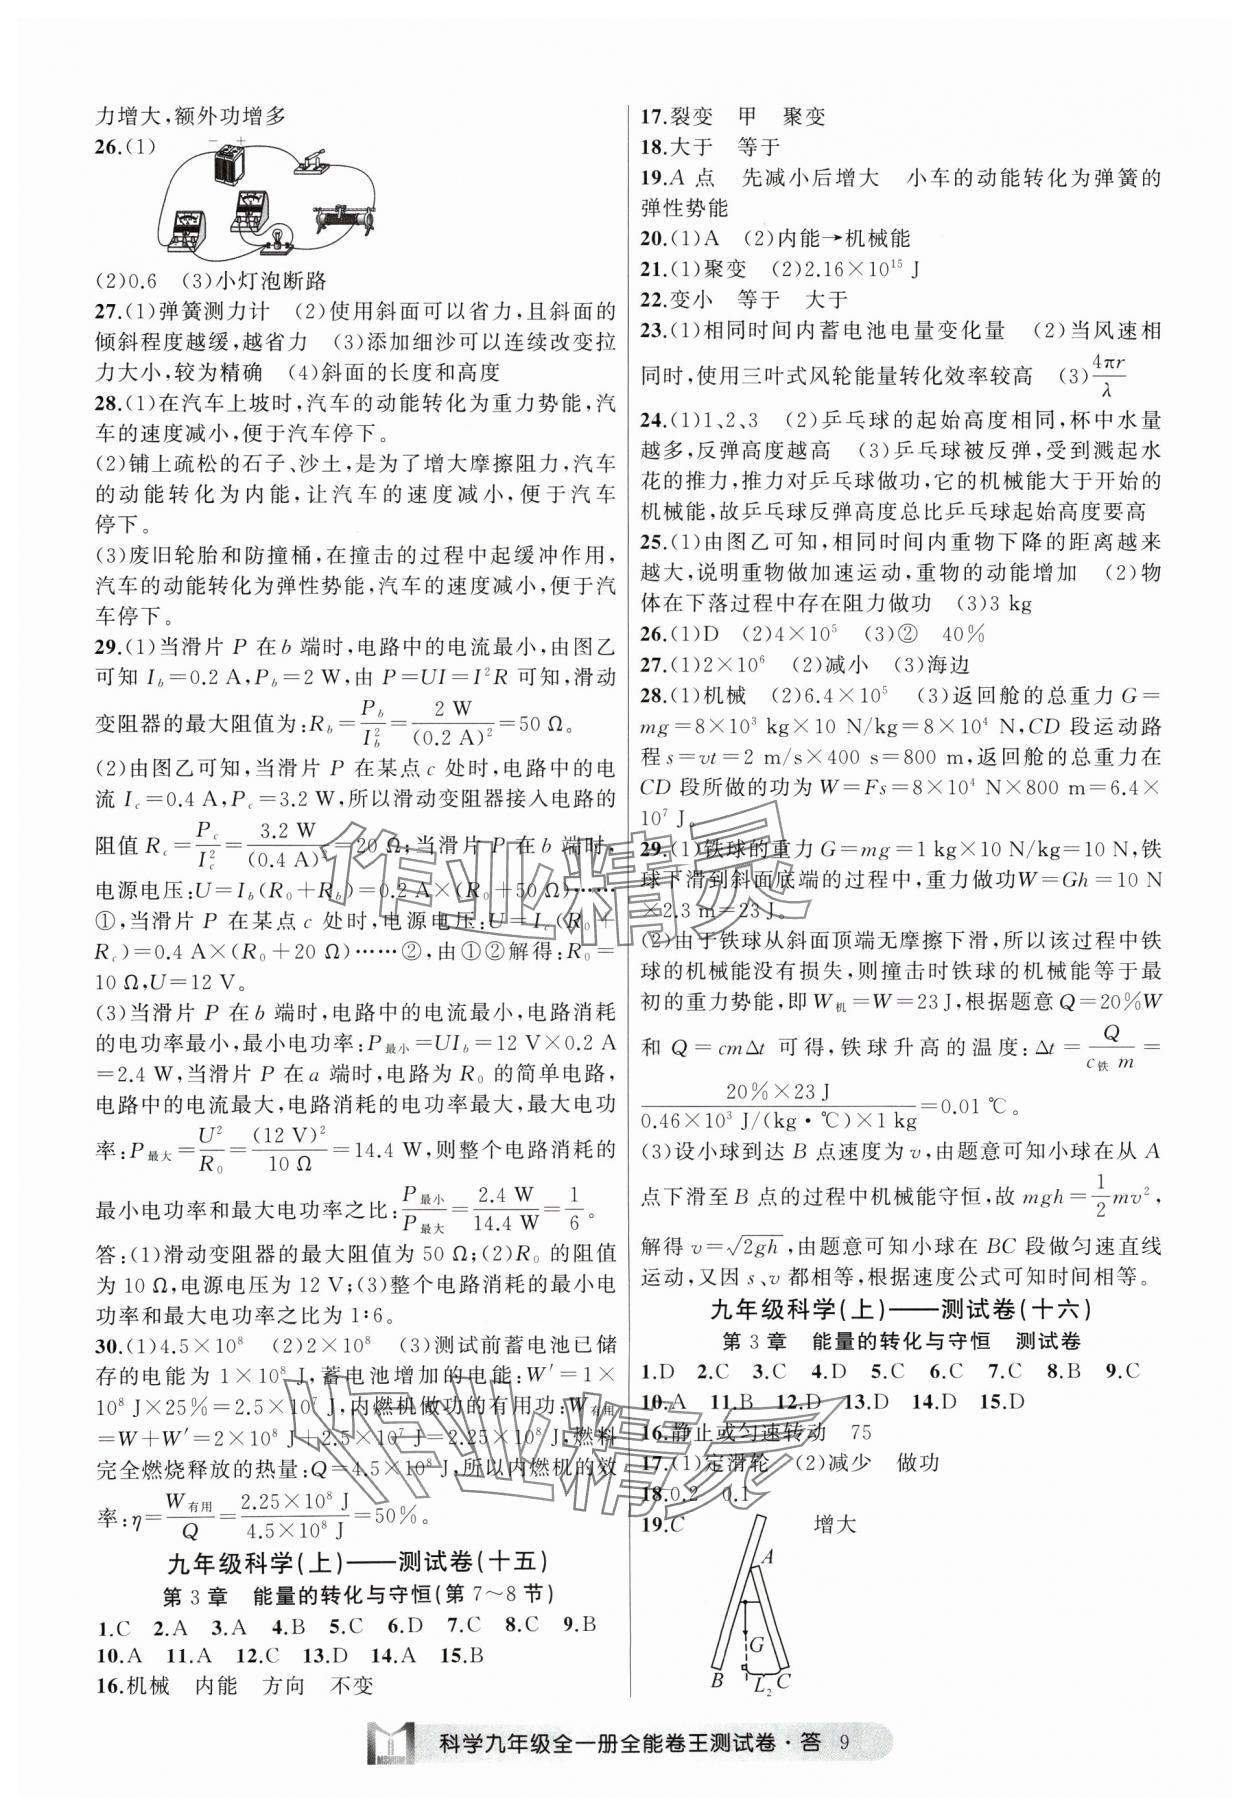 力增大,额外功增多
26.(1)
− +
(2)0.6 (3)小灯泡断路
27.(1)弹簧测力计 (2)使用斜面可以省力,且斜面的
倾斜程度越缓,越省力 (3)添加细沙可以连续改变拉
力大小,较为精确 (4)斜面的长度和高度
28.(1)在汽车上坡时,汽车的动能转化为重力势能,汽
车的速度减小,便于汽车停下。
(2)铺上疏松的石子、沙土,是为了增大摩擦阻力,汽车
的动能转化为内能,让汽车的速度减小,便于汽车
停下。
(3)废旧轮胎和防撞桶,在撞击的过程中起缓冲作用,
汽车的动能转化为弹性势能,汽车的速度减小,便于汽
车停下。
29.(1)当滑片 P 在 b 端时,电路中的电流最小,由图乙
可知 I_b=0.2 A,P_b=2 W,由 P=UI=I²R 可知,滑动
变阻器的最大阻值为:R_b=P_b/I_b²=2 W/(0.2 A)²=50 Ω。
(2)由图乙可知,当滑片 P 在某点 c 处时,电路中的电
流 I_c=0.4 A,P_c=3.2 W,所以滑动变阻器接入电路的
阻值 R_c=P_c/I_c²=3.2 W/(0.4 A)²=20 Ω;当滑片 P 在 b 端时,
电源电压:U=I_b(R₀+R_b)=0.2 A×(R₀+50 Ω)……
①,当滑片 P 在某点 c 处时,电源电压:U=I_c(R₀+
R_c)=0.4 A×(R₀+20 Ω)……②,由①②解得:R₀=
10 Ω,U=12 V。
(3)当滑片 P 在 b 端时,电路中的电流最小,电路消耗
的电功率最小,最小电功率:P最小=UI_b=12 V×0.2 A
=2.4 W,当滑片 P 在 a 端时,电路为 R₀ 的简单电路,
电路中的电流最大,电路消耗的电功率最大,最大电功
率:P最大=U²/R₀=(12 V)²/10 Ω=14.4 W,则整个电路消耗的
最小电功率和最大电功率之比:P最小/P最大=2.4 W/14.4 W=1/6。
答:(1)滑动变阻器的最大阻值为 50 Ω;(2)R₀ 的阻值
为 10 Ω,电源电压为 12 V;(3)整个电路消耗的最小电
功率和最大电功率之比为 1∶6。
30.(1)4.5×10⁸ (2)2×10⁸ (3)测试前蓄电池已储
存的电能为 1×10⁸ J,蓄电池增加的电能:W′=1×
10⁸ J×25%=2.5×10⁷ J,内燃机做功的有用功:W有用
=W+W′=2×10⁸ J+2.5×10⁷ J=2.25×10⁸ J,燃料
完全燃烧释放的热量:Q=4.5×10⁸ J,所以内燃机的效
率:η=W有用/Q=2.25×10⁸ J/4.5×10⁸ J=50%。
九年级科学(上)——测试卷(十五)
第 3 章 能量的转化与守恒(第 7~8 节)
1.C 2.A 3.A 4.B 5.C 6.D 7.C 8.C 9.B
10.A 11.A 12.C 13.D 14.A 15.B
16.机械 内能 方向 不变
17.裂变 甲 聚变
18.大于 等于
19.A 点 先减小后增大 小车的动能转化为弹簧的
弹性势能
20.(1)A (2)内能→机械能
21.(1)聚变 (2)2.16×10¹⁵ J
22.变小 等于 大于
23.(1)相同时间内蓄电池电量变化量 (2)当风速相
同时,使用三叶式风轮能量转化效率较高 (3)4πr/λ
24.(1)1、2、3 (2)乒乓球的起始高度相同,杯中水量
越多,反弹高度越高 (3)乒乓球被反弹,受到溅起水
花的推力,推力对乒乓球做功,它的机械能大于开始的
机械能,故乒乓球反弹高度总比乒乓球起始高度要高
25.(1)由图乙可知,相同时间内重物下降的距离越来
越大,说明重物做加速运动,重物的动能增加 (2)物
体在下落过程中存在阻力做功 (3)3 kg
26.(1)D (2)4×10⁵ (3)② 40%
27.(1)2×10⁶ (2)减小 (3)海边
28.(1)机械 (2)6.4×10⁵ (3)返回舱的总重力 G=
mg=8×10³ kg×10 N/kg=8×10⁴ N,CD 段运动路
程 s=vt=2 m/s×400 s=800 m,返回舱的总重力在
CD 段所做的功为 W=Fs=8×10⁴ N×800 m=6.4×
10⁷ J。
29.(1)铁球的重力 G=mg=1 kg×10 N/kg=10 N,铁
球下滑到斜面底端的过程中,重力做功W=Gh=10 N
×2.3 m=23 J。
(2)由于铁球从斜面顶端无摩擦下滑,所以该过程中铁
球的机械能没有损失,则撞击时铁球的机械能等于最
初的重力势能,即 W机=W=23 J,根据题意 Q=20%W
和 Q=cmΔt 可得,铁球升高的温度:Δt=Q/(c铁 m)=
20%×23 J/(0.46×10³ J/(kg·℃)×1 kg)=0.01 ℃。
(3)设小球到达 B 点速度为 v,由题意可知小球在从 A
点下滑至 B 点的过程中机械能守恒,故 mgh=1/2mv²,
解得 v=√2gh,由题意可知小球在 BC 段做匀速直线
运动,又因 s、v 都相等,根据速度公式可知时间相等。
九年级科学(上)——测试卷(十六)
第 3 章 能量的转化与守恒 测试卷
1.D 2.C 3.C 4.D 5.C 6.C 7.C 8.B 9.C
10.A 11.B 12.D 13.D 14.D 15.D
16.静止或匀速转动 75
17.(1)定滑轮 (2)减少 做功
18.0.2 0.1
19.C 增大
A
G
B L₂ C
科学九年级全一册全能卷王测试卷·答 9
作业精灵
作业精灵